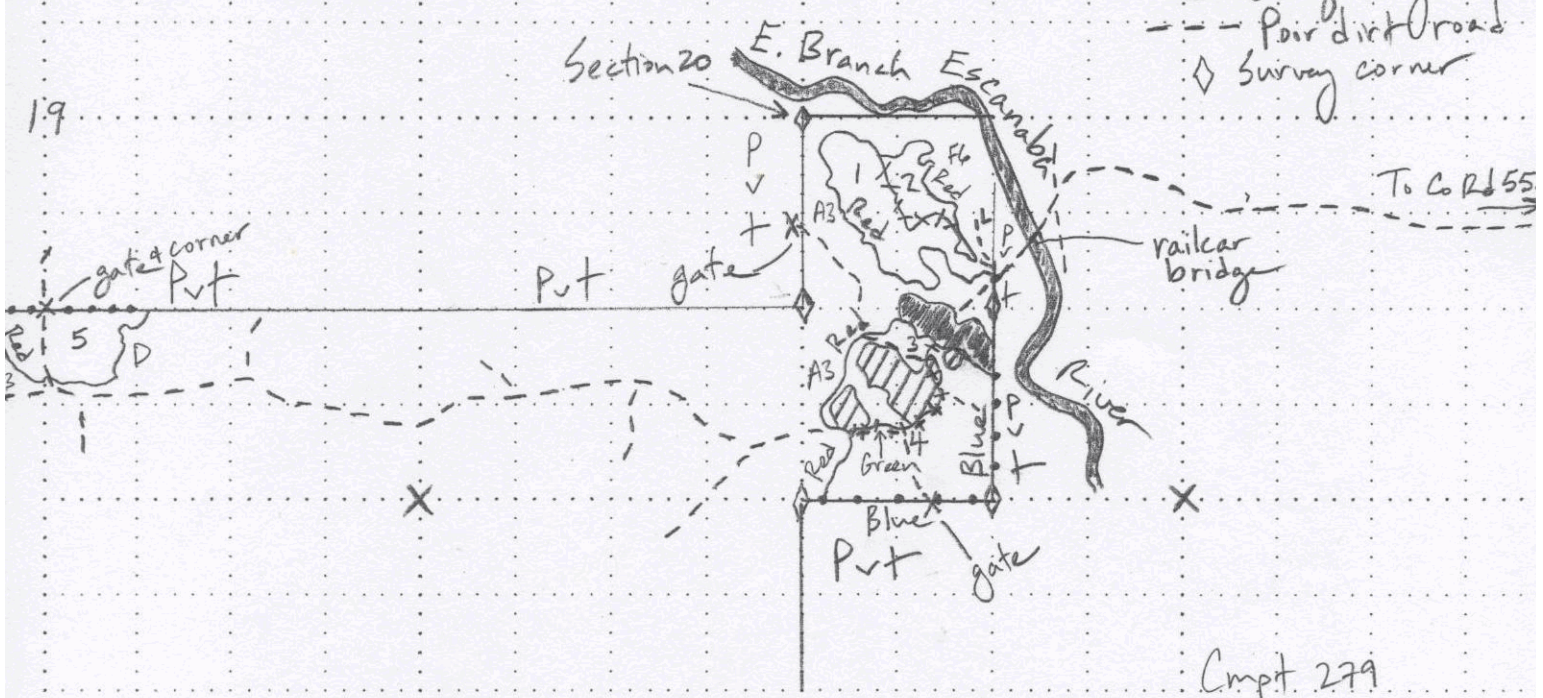 Poir dirt road
Survey corner
Section 20
E. Branch Escanaba
River
19
1
2
F6
Red
A3 Red
Pvt
gate
Pvt
To Co Rd 55
railcar
bridge
gate & corner
Pvt
Pvt
Red
5
D
3
Red
3
A3
Red
14
Green
Blue
Pvt
Blue
Pvt
gate
Cmpt 279